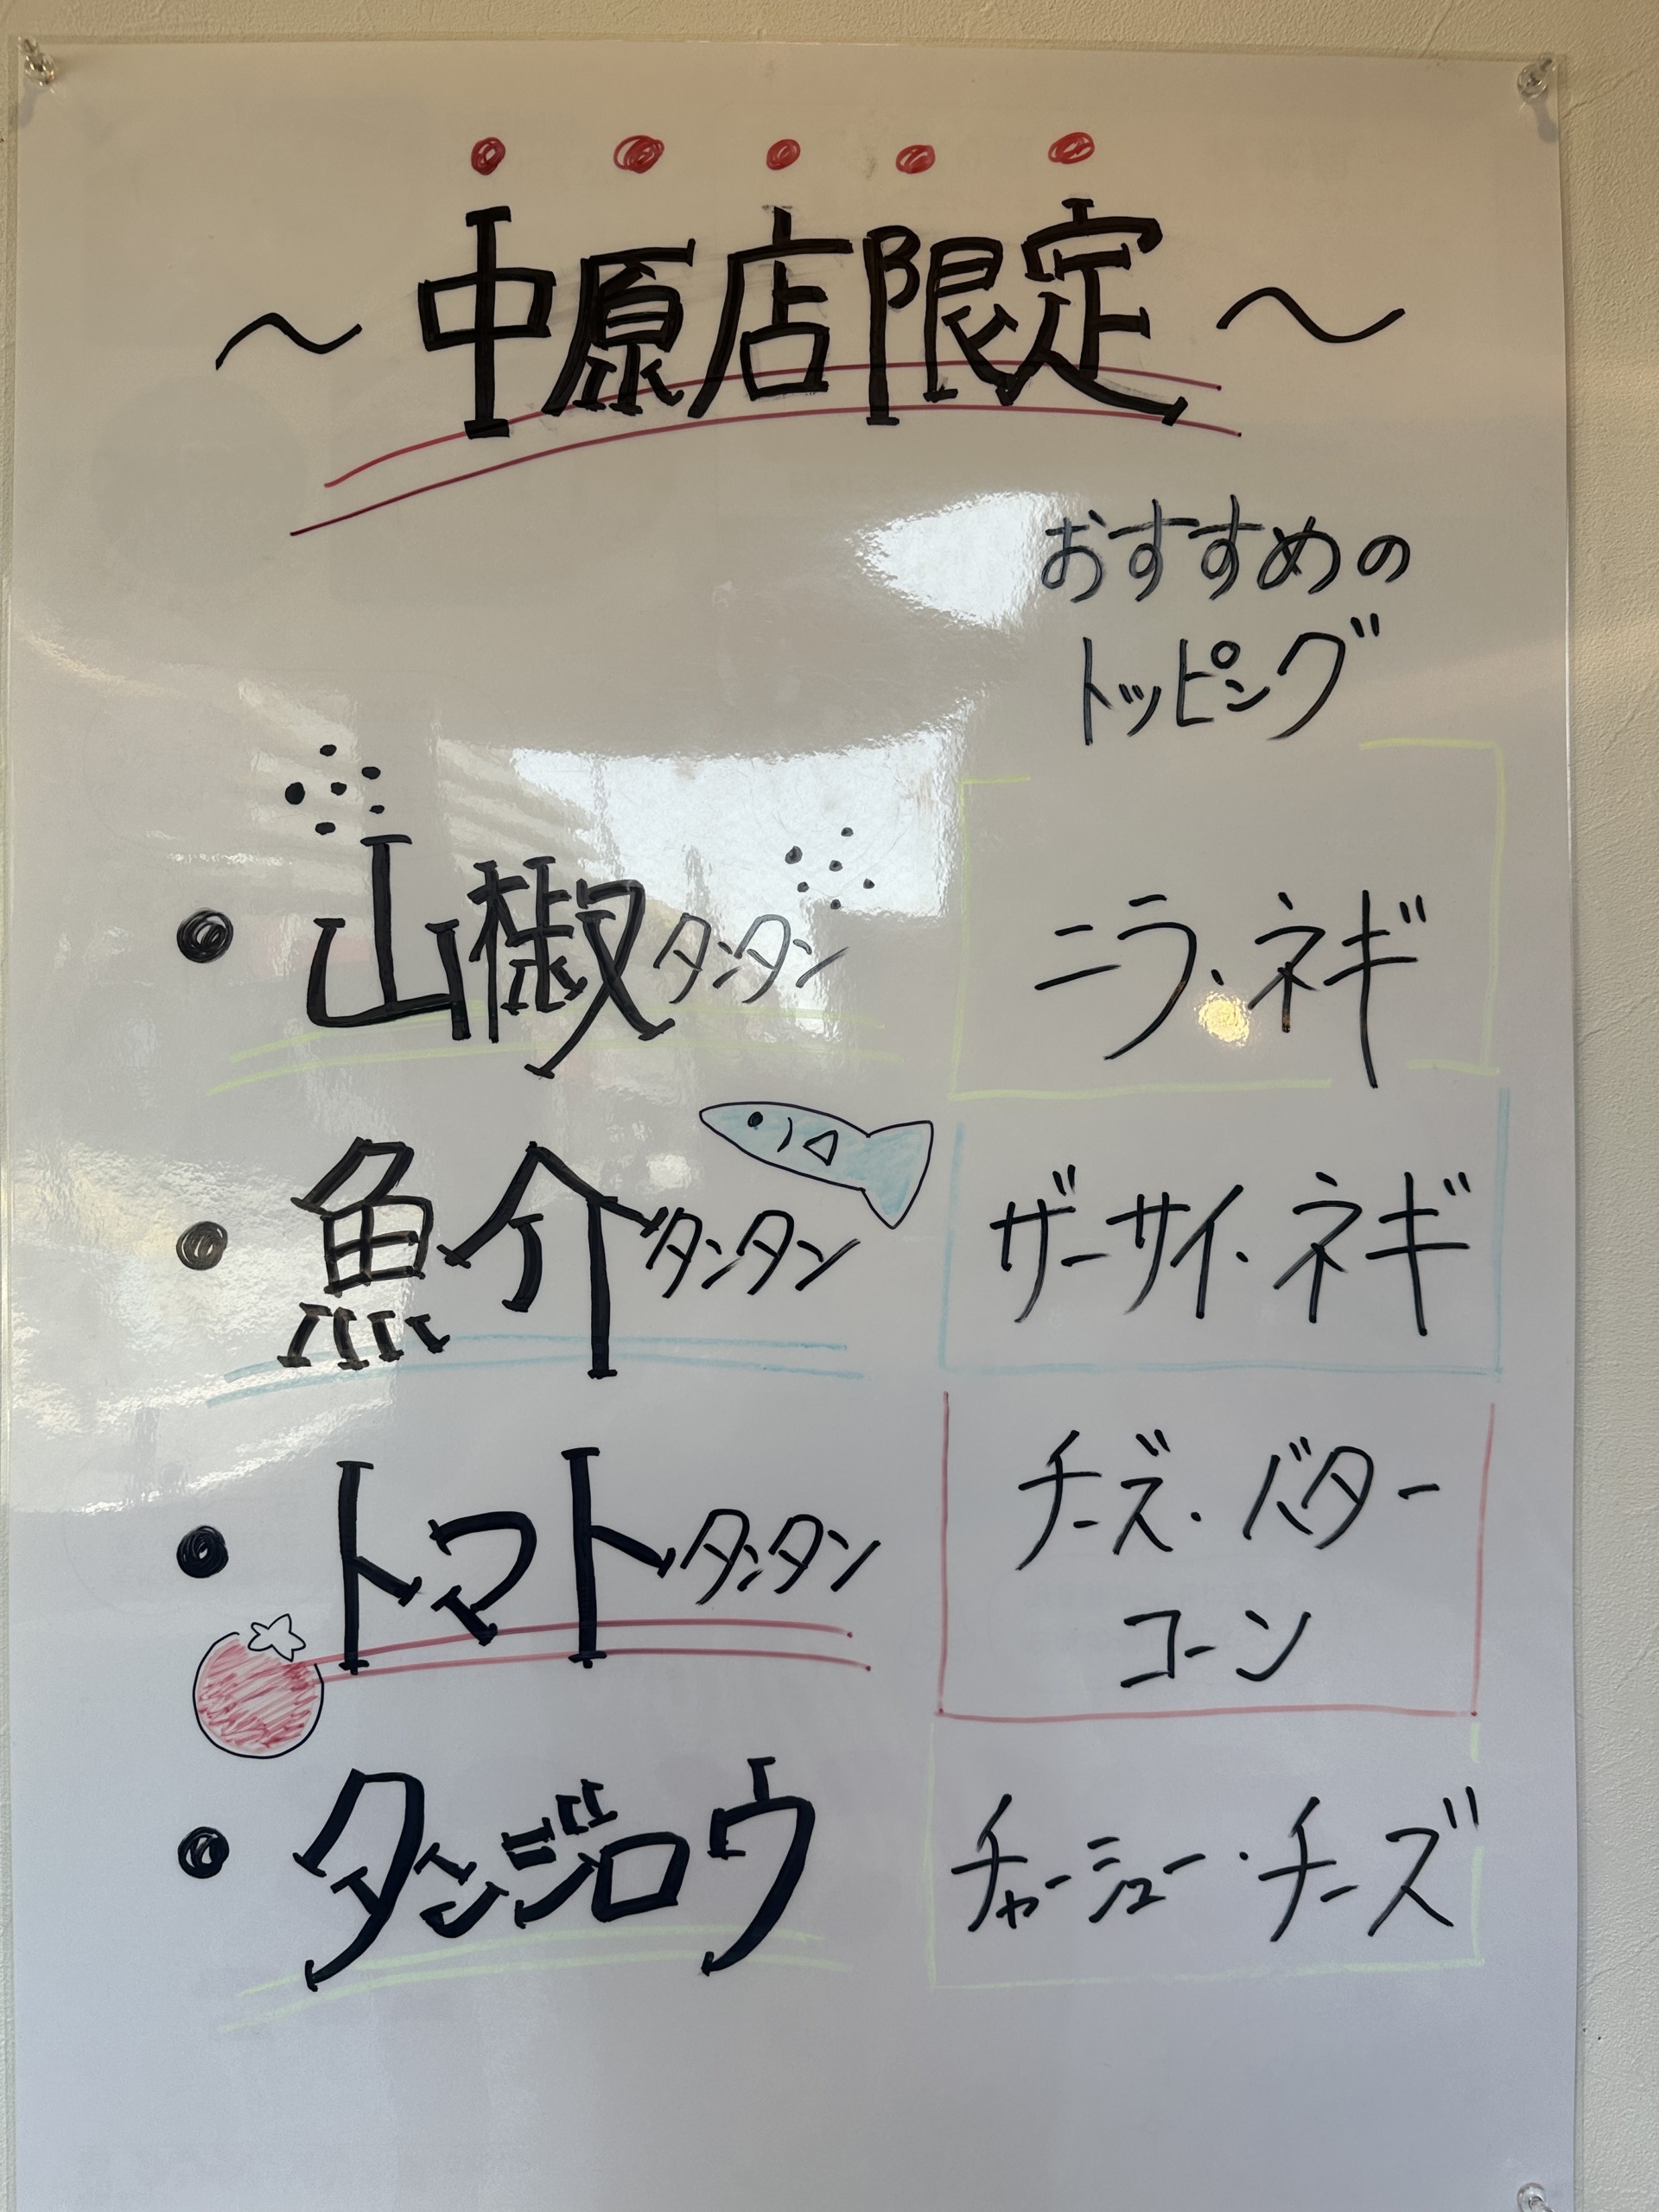 ～中原店限定～
おすすめの
トッピング
・山椒タンタン
ニラ・ネギ
・魚介タンタン
ザーサイ・ネギ
・トマトタンタン
チーズ・バター
コーン
・タンジロウ
チャーシュー・チーズ